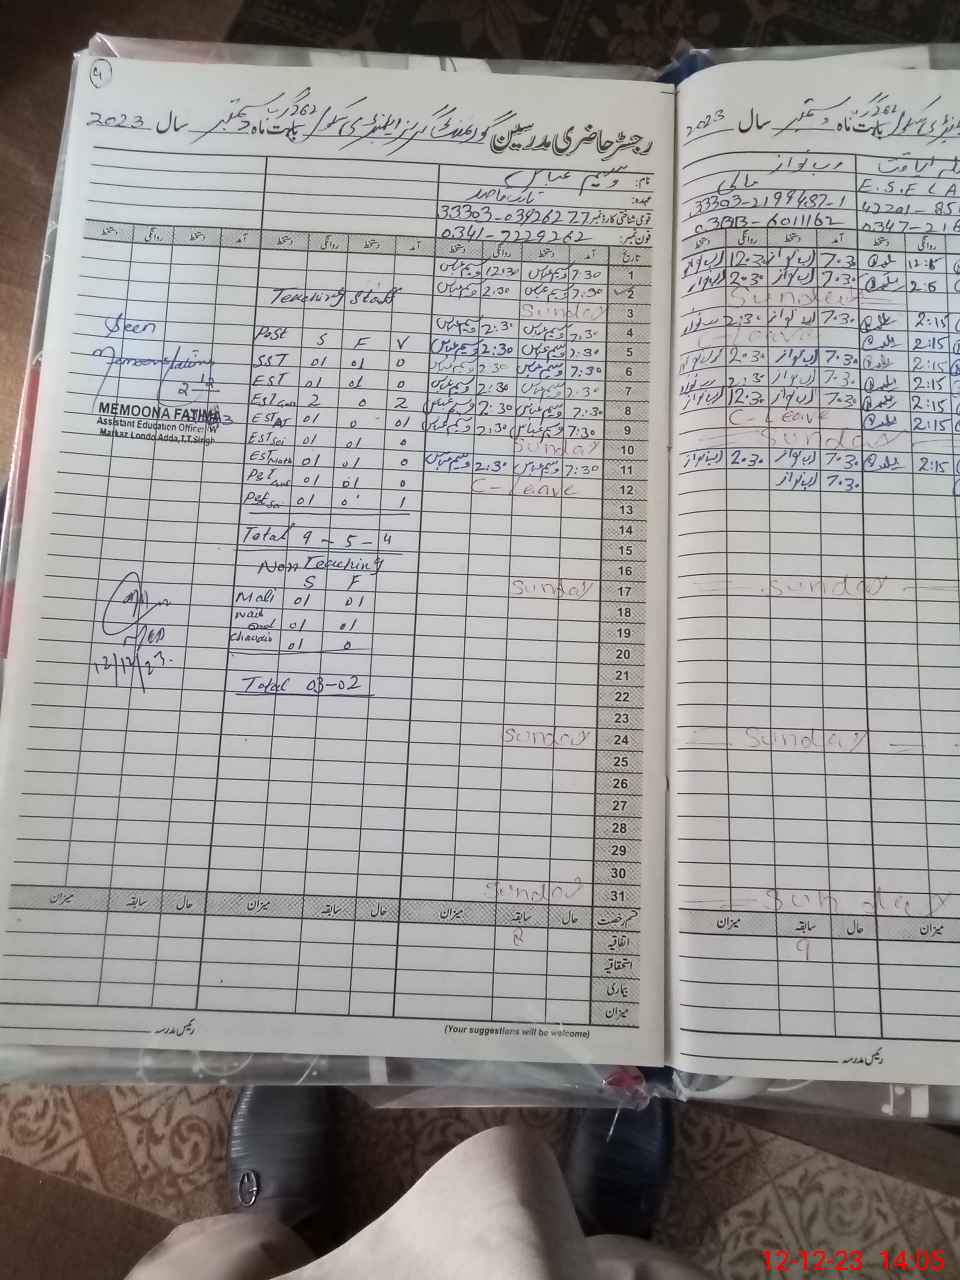 4
رجسٹر حاضری مدرسین گورنمنٹ گرلز ایلیمنٹری سکول 262 گ ب بابت ماہ دسمبر سال 2023
نام: وسیم عباس
عہدہ: نائب قاصد
قومی شناختی کارڈ نمبر 33303-0342627-7
فون نمبر: 0341-7229262
تاریخ آمد دستخط روانگی دستخط آمد دستخط روانگی دستخط آمد دستخط روانگی دستخط
1 7:30 وسیم عباس 12:30 وسیم عباس
2 7:30 وسیم عباس 2:30 وسیم عباس
3 Sunday
4 7:30 وسیم عباس 2:30 وسیم عباس
5 7:30 وسیم عباس 2:30 وسیم عباس
6 7:30 وسیم عباس 2:30 وسیم عباس
7 7:30 وسیم عباس 2:30 وسیم عباس
8 7:30 وسیم عباس وسیم عباس
9 7:30 وسیم عباس 2:30 وسیم عباس
10 Sunday
11 7:30 وسیم عباس 2:30 وسیم عباس
12 C-Leave
13
14
15
16
17 Sunday
18
19
20
21
22
23
24 Sunday
25
26
27
28
29
30
31 Sunday
Teaching Staff
Post S F V
SST 01 01 0
EST 01 01 0
EST 2 0 2
EST 01 0 01
EST Sci 01 01 0
EST Math 01 01 0
PST 01 01 0
PST 01 0 1
Total 9 - 5 - 4
Non Teaching
S F
Mali 01 01
Naib Qasid 01 01
01 0
Total 03-02
Seen
Memoona Fatima
MEMOONA FATIMA
Assistant Education Officer (W
Markaz Londo Adda, T.T.Singh
12/12/23.
قسم رخصت حال سابقہ میزان حال سابقہ میزان حال سابقہ میزان
اتفاقیہ 2
استحقاقیہ
بیماری
میزان
(Your suggestions will be welcome)
رئیس مدرسہ
262 گ ب بابت ماہ دسمبر سال 2023
رب نواز
مالی
33303-2199487-1
6011162
E.S.E
42201-850
0347-218
آمد دستخط روانگی دستخط
7:30 رب نواز 12:30 رب نواز
7:30 رب نواز 2:30 رب نواز
Sunday
7:30 رب نواز 2:30 رب نواز 2:15
C-Leave 2:15
7:30 رب نواز 2:30 رب نواز 2:15
7:30 رب نواز 2:30 رب نواز 2:15
7:30 رب نواز 12:30 رب نواز 2:15
C-Leave 2:15
Sunday
7:30 رب نواز 2:30 رب نواز 2:15
7:30 رب نواز
Sunday
Sunday
Sunday
حال سابقہ میزان
9
میزان
رئیس مدرسہ
12-12-23 14:05